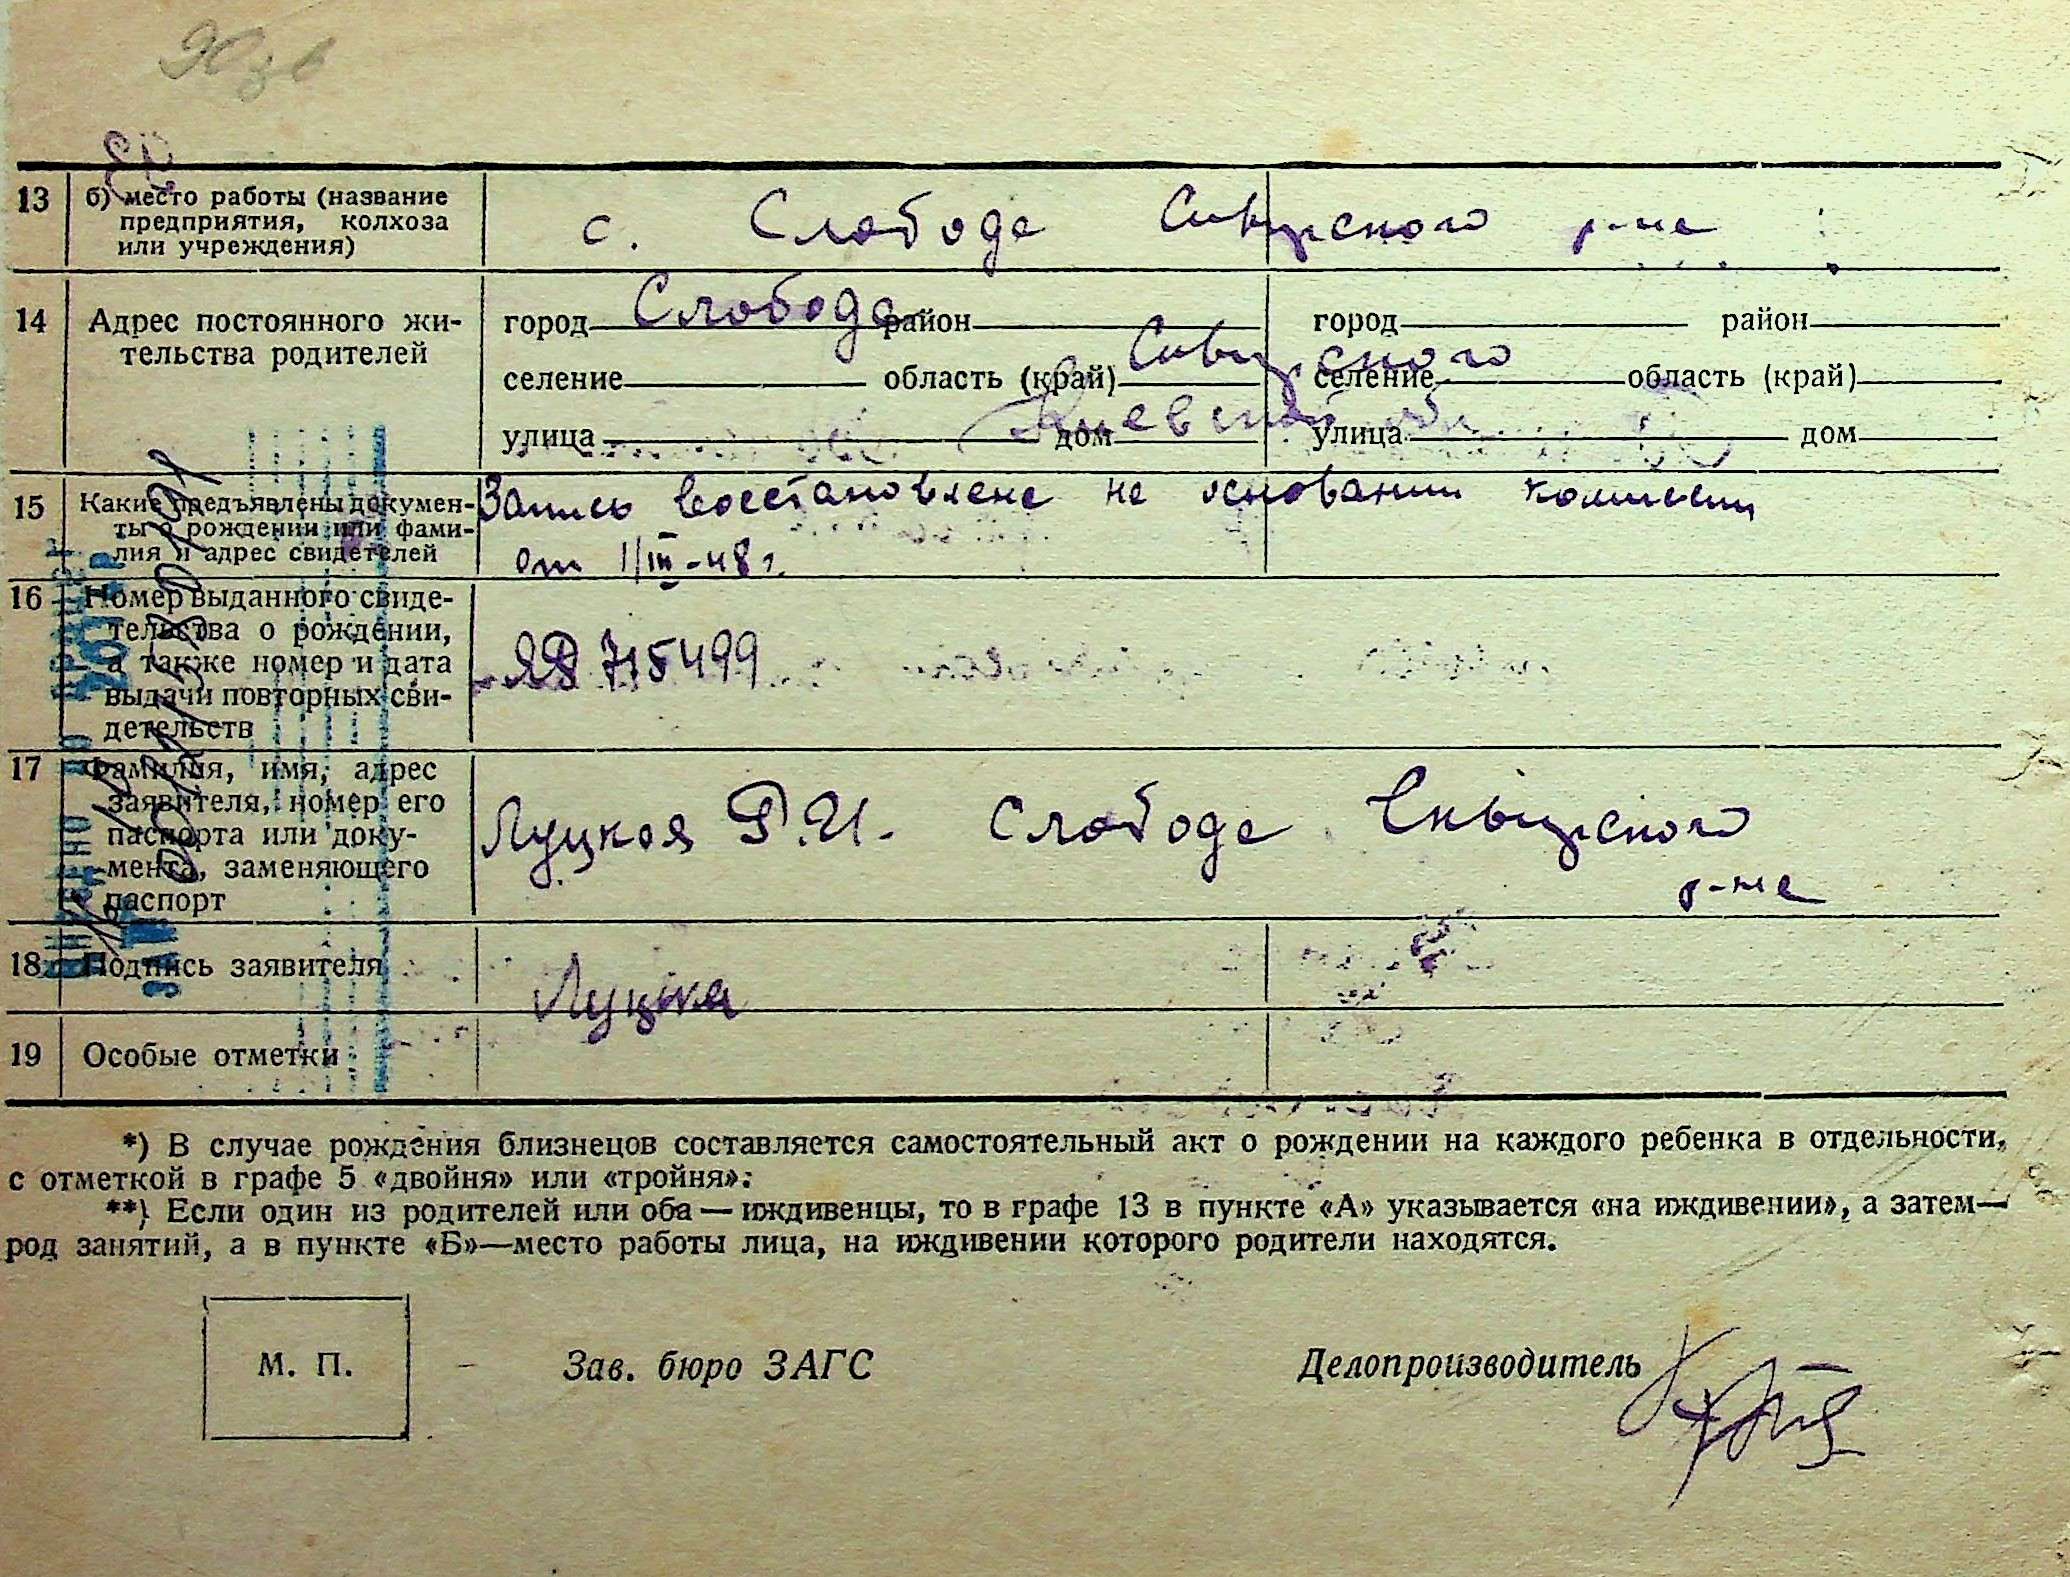 13 б) место работы (название
предприятия, колхоза
или учреждения)
с. Слобода Сквирского р-на
14 Адрес постоянного жи-
тельства родителей
город Слобода район город район
Сквирского
селение область (край) селение область (край)
Киевской обл
улица дом улица дом
15 Какие предъявлены докумен-
ты о рождении или фами-
лия и адрес свидетелей
Запись восстановлена на основании комиссии
от 1/III-48 г.
16 Номер выданного свиде-
тельства о рождении,
а также номер и дата
выдачи повторных сви-
детельств
715499
17 Фамилия, имя, адрес
заявителя, номер его
паспорта или доку-
мента, заменяющего
паспорт
Луцкая Р.И. Слобода Сквирского
р-на
18 Подпись заявителя
Луцка
19 Особые отметки
*) В случае рождения близнецов составляется самостоятельный акт о рождении на каждого ребенка в отдельности,
с отметкой в графе 5 «двойня» или «тройня».
**) Если один из родителей или оба — иждивенцы, то в графе 13 в пункте «А» указывается «на иждивении», а затем—
род занятий, а в пункте «Б»—место работы лица, на иждивении которого родители находятся.
М. П. Зав. бюро ЗАГС Делопроизводитель